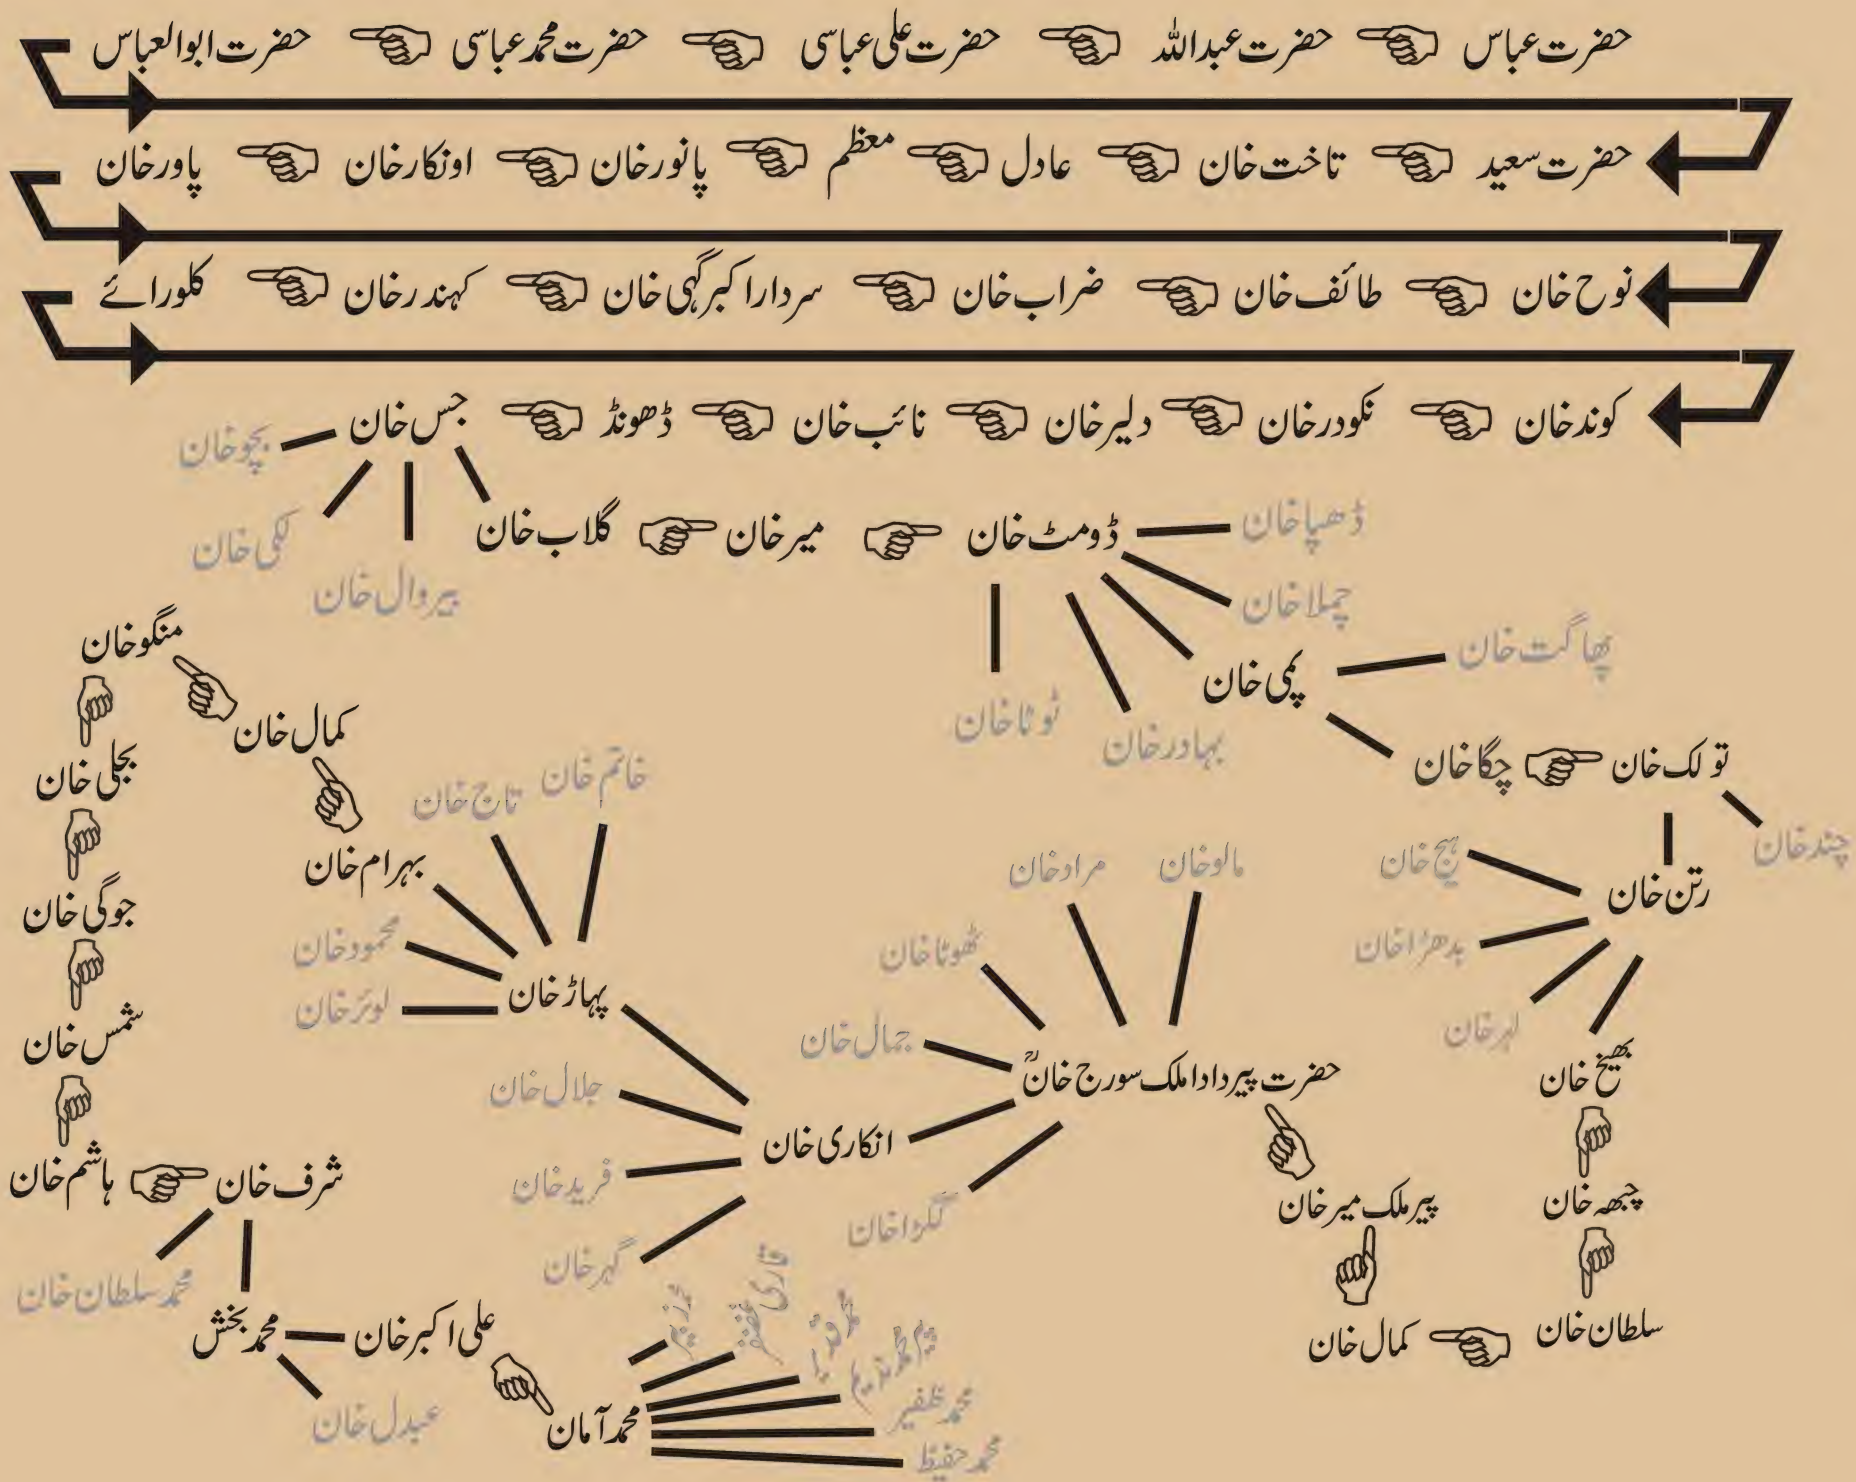 حضرت عباس حضرت عبداللہ حضرت علی عباسی حضرت محمد عباسی حضرت ابوالعباس
حضرت سعید تاخت خان عادل معظم پانور خان اونکار خان پاور خان
نوح خان طائف خان ضراب خان سردار اکبر گہی خان کہندر خان کلورائے
کوند خان نکودر خان دلیر خان نائب خان ڈھونڈ جس خان
بچو خان
لکمی خان
پیر وال خان
گلاب خان میر خان ڈومٹ خان
ڈھپا خان
چملا خان
پمی خان
بہادر خان
ٹوٹا خان
پھاگت خان
چگا خان تولک خان
چند خان
رتن خان
ہیج خان
بدھڑا خان
لہر خان
بھیخ خان
چبھہ خان
سلطان خان
کمال خان
پیر ملک میر خان
حضرت پیر دادا ملک سورج خانؒ
مالو خان
مراد خان
ٹھوٹا خان
جمال خان
انکاری خان
لکڑا خان
پہاڑ خان
جلال خان
فرید خان
گہر خان
خاتم خان
تاج خان
بہرام خان
محمود خان
لوئر خان
کمال خان
منگو خان
بجلی خان
جوگی خان
شمس خان
ہاشم خان شرف خان
محمد سلطان خان
محمد بخش علی اکبر خان
عبدل خان
محمد آمان
محمد زبیر
قاری غضنفر
محمد قدیر
پیر محمد ندیم
محمد ظفیر
محمد حفیظ